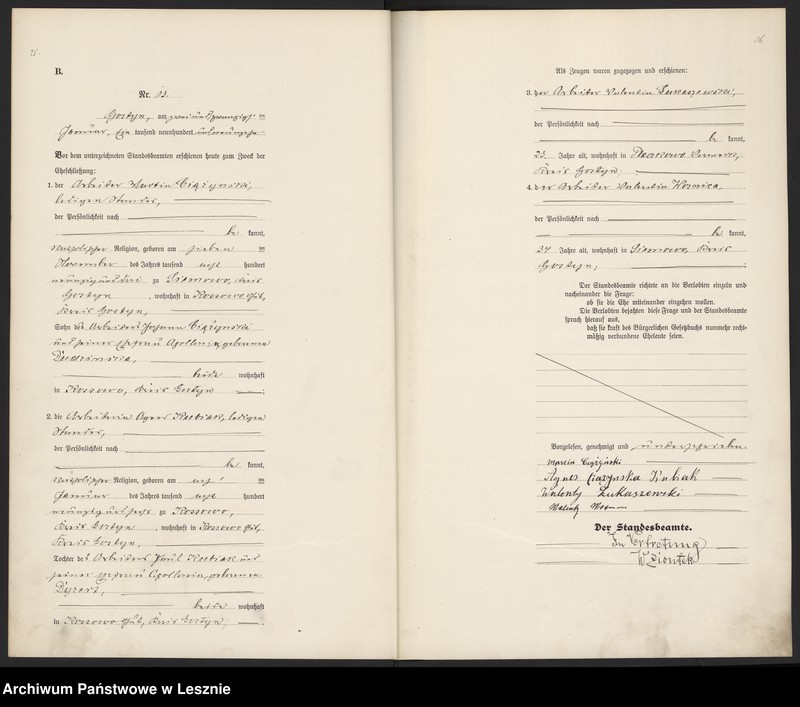 B.
Nr. 13.
Gostyn, am zwei und zwanzigsten
Januar, Ein tausend neunhundert und neunzehn.
Vor dem unterzeichneten Standesbeamten erschienen heute zum Zweck der
Eheschließung:
1. der Arbeiter Martin Ciążynski,
ledigen Standes,
der Persönlichkeit nach
be kannt,
katholischer Religion, geboren am sieben ten
November des Jahres tausend acht hundert
neunzig und drei zu Siemowo, Kreis
Gostyn, wohnhaft in Kossowo Gut,
Kreis Gostyn,
Sohn des Arbeiters Johann Ciążynski
und seiner Ehefrau Apollonia, geborenen
beide wohnhaft
in Kossowo, Kreis Gostyn;
2. die Arbeiterin Agnes Kubiak, ledigen
Standes,
der Persönlichkeit nach
be kannt,
katholischer Religion, geboren am acht ten
Januar des Jahres tausend acht hundert
neunzig und sechs zu Kossowo,
Kreis Gostyn, wohnhaft in Kossowo Gut,
Kreis Gostyn,
Tochter des Arbeiters Paul Kubiak und
seiner Ehefrau Apollonia, geborenen
beide wohnhaft
in Kossowo Gut, Kreis Gostyn,
26
Als Zeugen waren zugezogen und erschienen:
3. der Arbeiter Valentin Lukaszewski,
der Persönlichkeit nach
be kannt,
23 Jahre alt, wohnhaft in
Kreis Gostyn.
4. der Arbeiter Valentin
der Persönlichkeit nach
be kannt,
34 Jahre alt, wohnhaft in Siemowo, Kreis
Gostyn;
Der Standesbeamte richtete an die Verlobten einzeln und
nacheinander die Frage:
ob sie die Ehe miteinander eingehen wollen.
Die Verlobten bejahten diese Frage und der Standesbeamte
sprach hierauf aus,
daß sie kraft des Bürgerlichen Gesetzbuchs nunmehr recht-
mäßig verbundene Eheleute seien.
Vorgelesen, genehmigt und unterschrieben.
Marcin Ciążyński
Agnes Ciazynska Kubiak
Walenty Łukaszewski
Der Standesbeamte.
In Vertretung
W Ziontek
Archiwum Państwowe w Lesznie